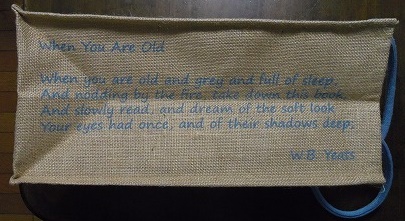 When You Are Old
When you are old and grey and full of sleep,
And nodding by the fire, take down this book,
And slowly read, and dream of the soft look
Your eyes had once, and of their shadows deep;
W.B. Yeats